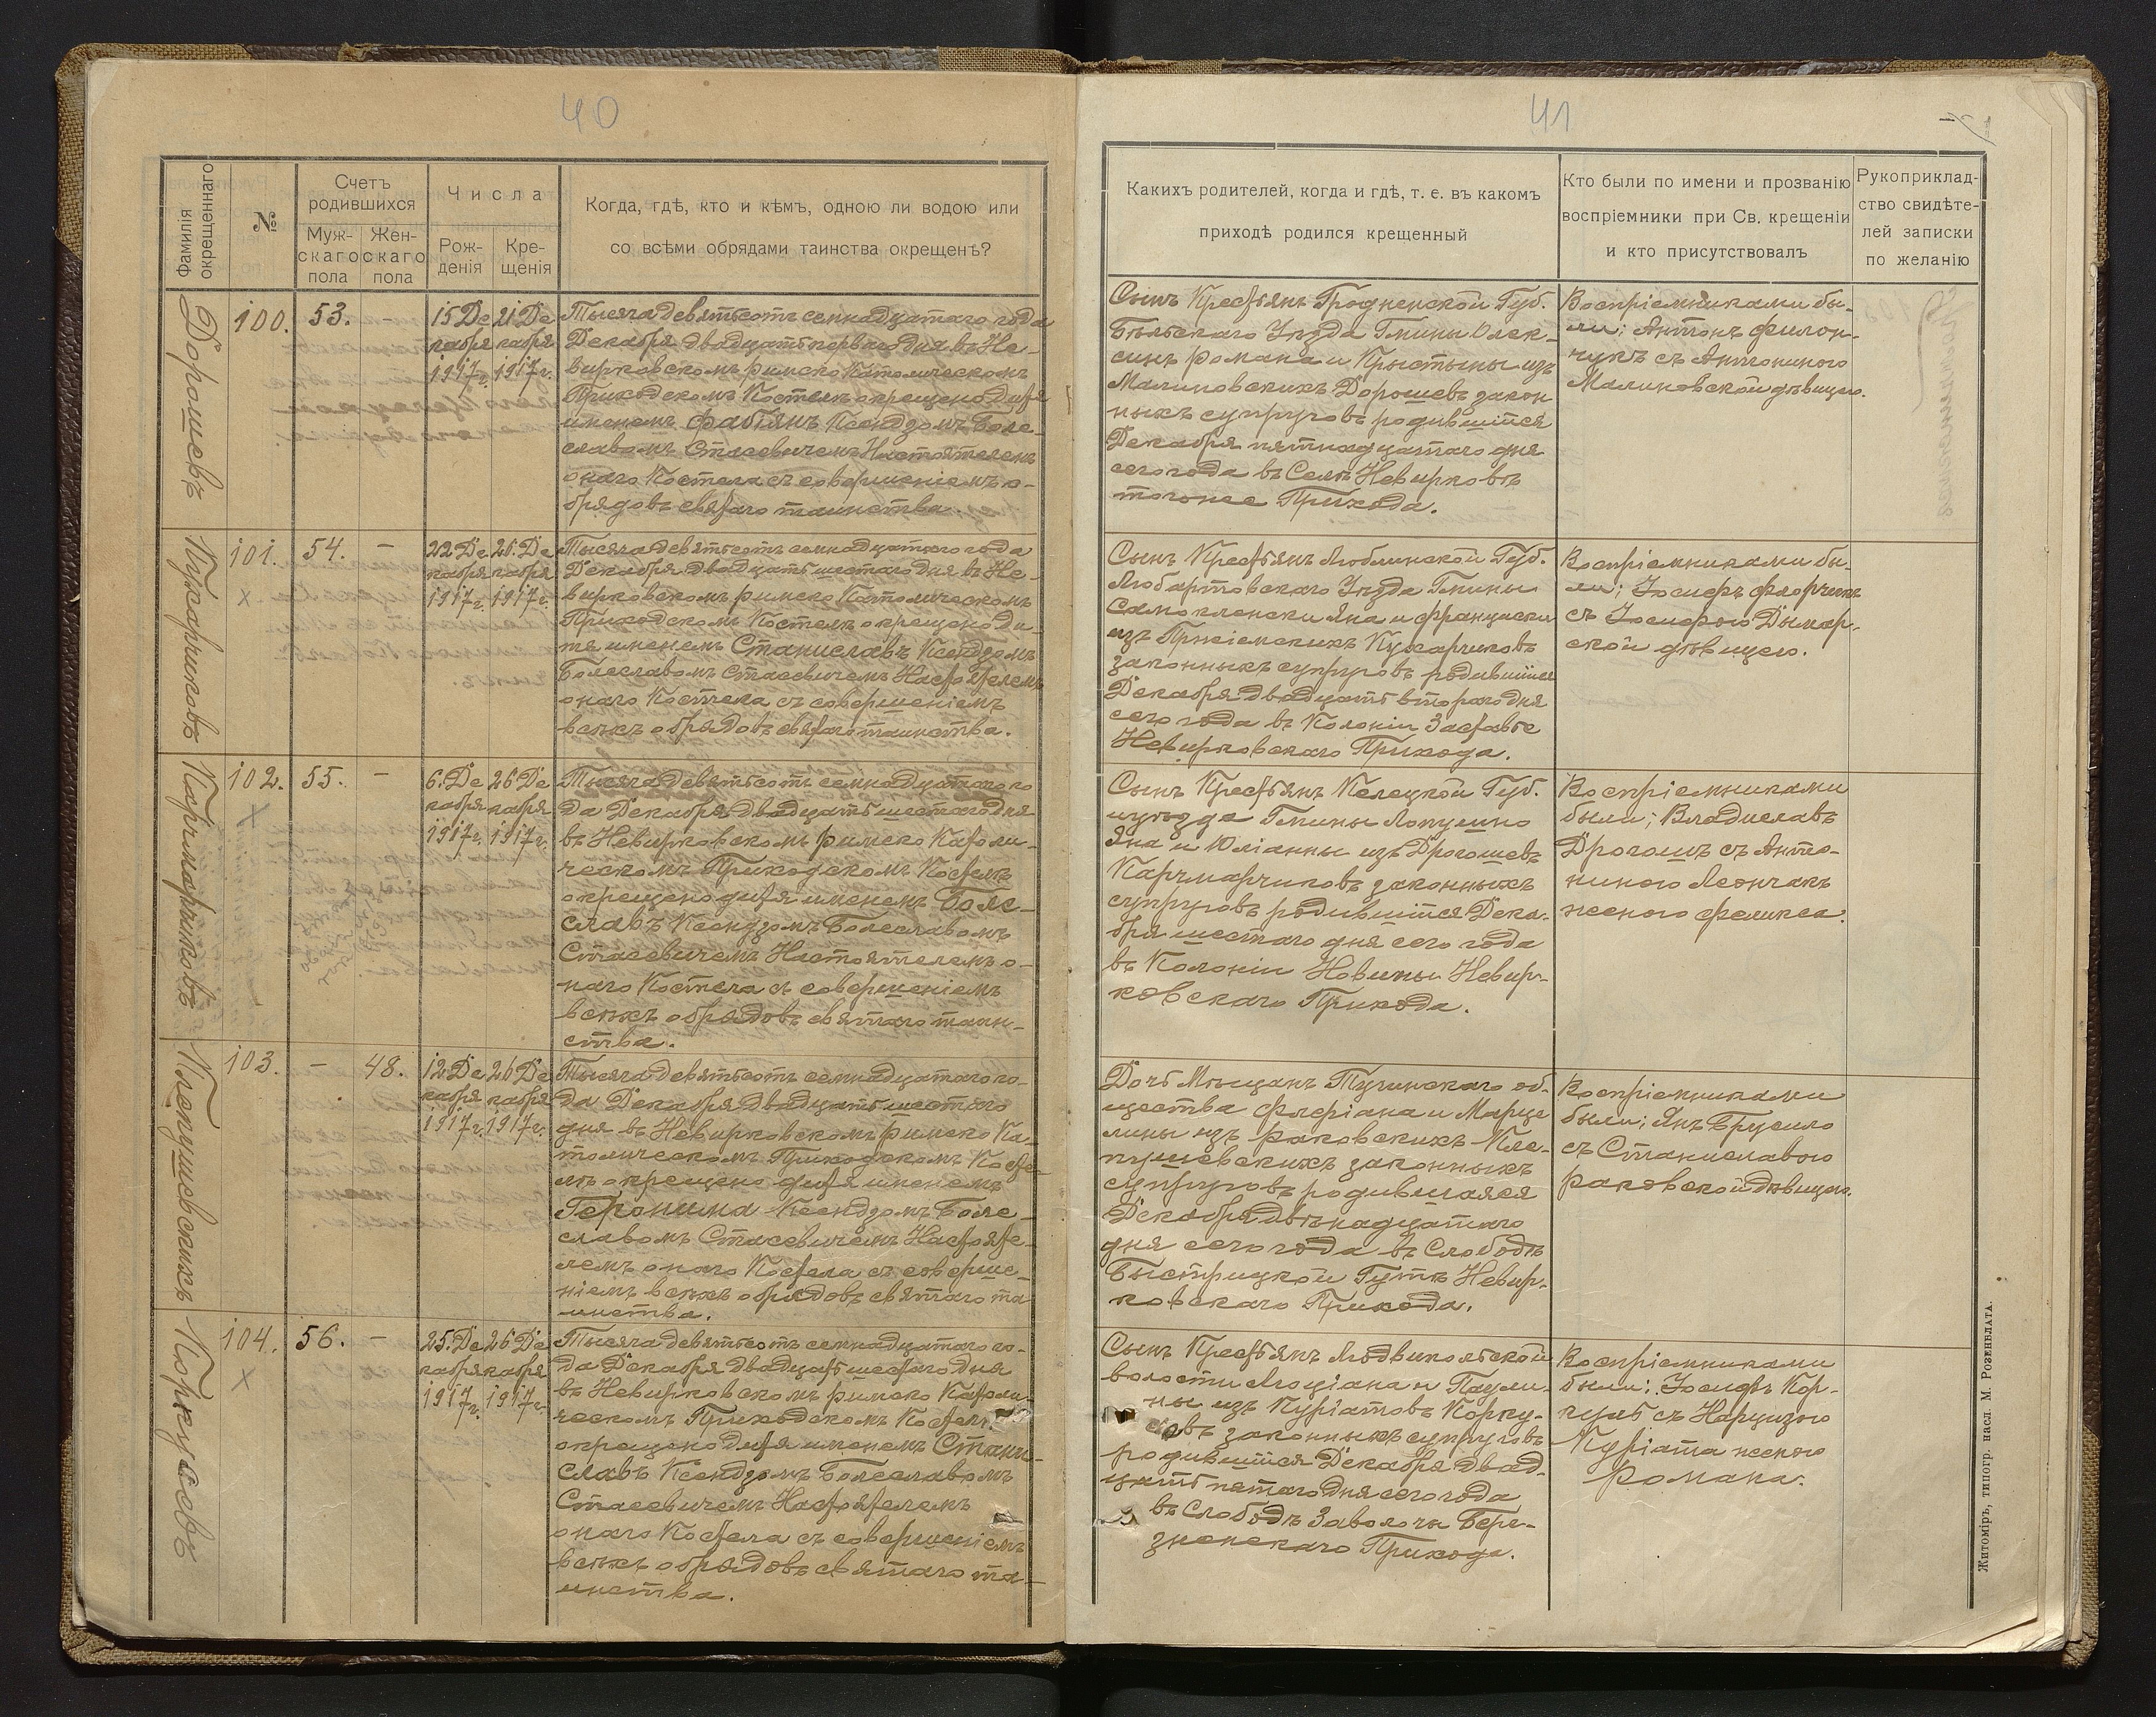 40
Фамилія окрещеннаго
№
Счетъ родившихся
Муж-
скаго
пола
Жен-
скаго
пола
Числа
Рож-
денія
Кре-
щенія
Когда, гдѣ, кто и кѣмъ, одною ли водою или
со всѣми обрядами таинства окрещенъ?
Дорошевъ
100.
53.
–
15 Де
кабря
1917 г.
21 Де
кабря
1917 г.
Тысяча девятьсотъ семнадцатаго года
Декабря двадцать перваго дня въ Не-
вирковскомъ римско Католическомъ
Приходскомъ Костелѣ окрещено дитя
именемъ Фабіянъ Ксендзомъ Боле-
славомъ Стасевичемъ Настоятелемъ
онаго Костела съ совершеніемъ о-
брядовъ святаго таинства.
Кухарчиковъ
101.
х
54.
–
22 Де
кабря
1917 г.
26 Де
кабря
1917 г.
Тысяча девятьсотъ семнадцатаго года
Декабря двадцать шестаго дня въ Не-
вирковскомъ римско Католическомъ
Приходскомъ Костелѣ окрещено ди-
тя именемъ Станиславъ Ксендзомъ
Болеславомъ Стасевичемъ Настоятелемъ
онаго Костела съ совершеніемъ
всѣхъ обрядовъ святаго таинства.
Карчмарчиковъ
102.
х
55.
–
6. Де
кабря
1917 г.
26 Де
кабря
1917 г.
Тысяча девятьсотъ семнадцатаго го
да Декабря двадцать шестаго дня
въ Невирковскомъ римско Католи-
ческомъ Приходскомъ Костелѣ
окрещено дитя именемъ Боле-
славъ Ксендзомъ Болеславомъ
Стасевичемъ Настоятелемъ о-
наго Костела съ совершеніемъ
всѣхъ обрядовъ святаго таин-
ства.
Кляпушевскихъ
103.
–
48.
12 Де
кабря
1917 г.
26 Де
кабря
1917 г.
Тысяча девятьсотъ семнадцатаго го-
да Декабря двадцать шестаго
дня въ Невирковскомъ римско Ка-
толическомъ Приходскомъ Косте-
лѣ окрещено дитя именемъ
Геронима Ксендзомъ Боле-
славомъ Стасевичемъ Настояте-
лемъ онаго Костела съ соверше-
ніемъ всѣхъ обрядовъ святаго та-
инства.
Коркусовъ
104.
х
56.
–
25. Де
кабря
1917 г.
26 Де
кабря
1917 г.
Тысяча девятьсотъ семнадцатаго го-
да Декабря двадцать шестаго дня
въ Невирковскомъ римско Католи-
ческомъ Приходскомъ Костелѣ
окрещено дитя именемъ Стани-
славъ Ксендзомъ Болеславомъ
Стасевичемъ Настоятелемъ
онаго Костела съ совершеніемъ
всѣхъ обрядовъ святаго та-
инства.
41
Какихъ родителей, когда и гдѣ, т. е. въ какомъ
приходѣ родился крещенный
Кто были по имени и прозванію
воспріемники при Св. крещеніи
и кто присутствовалъ
Рукоприклад-
ство свидѣте-
лей записки
по желанію
Сынъ Крестьянъ Гродненской Губ.
Бѣльскаго Уѣзда Гмины Олек-
синъ Романа и Крыстыны изъ
Малиновскихъ Дорошевъ закон
ныхъ супруговъ родившійся
Декабря пятнадцатаго дня
сего года въ Селѣ Невирковѣ
тогоже Прихода.
Воспріемниками бы-
ли; Антонъ Филон-
чукъ съ Антониною
Малиновской дѣвицею.
Сынъ Крестьянъ Люблинской Губ.
Любартовскаго Уѣзда Гмины
Самокленски Яна и Франциски
изъ Пржіемскихъ Кухарчиковъ
законныхъ супруговъ родившійся
Декабря двадцать втораго дня
сего года въ Колоніи Заставье
Невирковскаго Прихода.
Воспріемниками бы-
ли; Іосифъ Флорчикъ
съ Іосифою Дымар-
ской дѣвицею.
Сынъ Крестьянъ Келецкой Губ.
и уѣзда Гмины Лопушно
Яна и Юліанны изъ Дрогошевъ
Карчмарчиковъ законныхъ
супруговъ родившійся Дека-
бря шестаго дня сего года
въ Колоніи Новины Невир-
ковскаго Прихода.
Воспріемниками
были; Владиславъ
Дрогошъ съ Анто-
ниною Леончакъ
женою Феликса.
Дочь Мѣщанъ Тучинскаго об-
щества Флоріана и Марце
лины изъ Раковскихъ Кля-
пушевскихъ законныхъ
супруговъ родившаяся
Декабря двѣнадцатаго
дня сего года въ Слободѣ
Быстрицкой Гутѣ Невир-
ковскаго Прихода.
Воспріемниками
были; Янъ Брусило
съ Станиславою
Раковской дѣвицею.
Сынъ Крестьянъ Людвипольской
волости Люціана и Паули-
ны изъ Куріатовъ Корку-
совъ законныхъ супруговъ
родившійся Декабря двад-
цать пятаго дня сего года
въ Слободѣ Заволочи Бере-
зненскаго Прихода.
Воспріемниками
были; Іосифъ Кор-
кусъ съ Нарцизою
Куріата женою
Романа.
Житоміръ, типогр. насл. М. Розенблата.